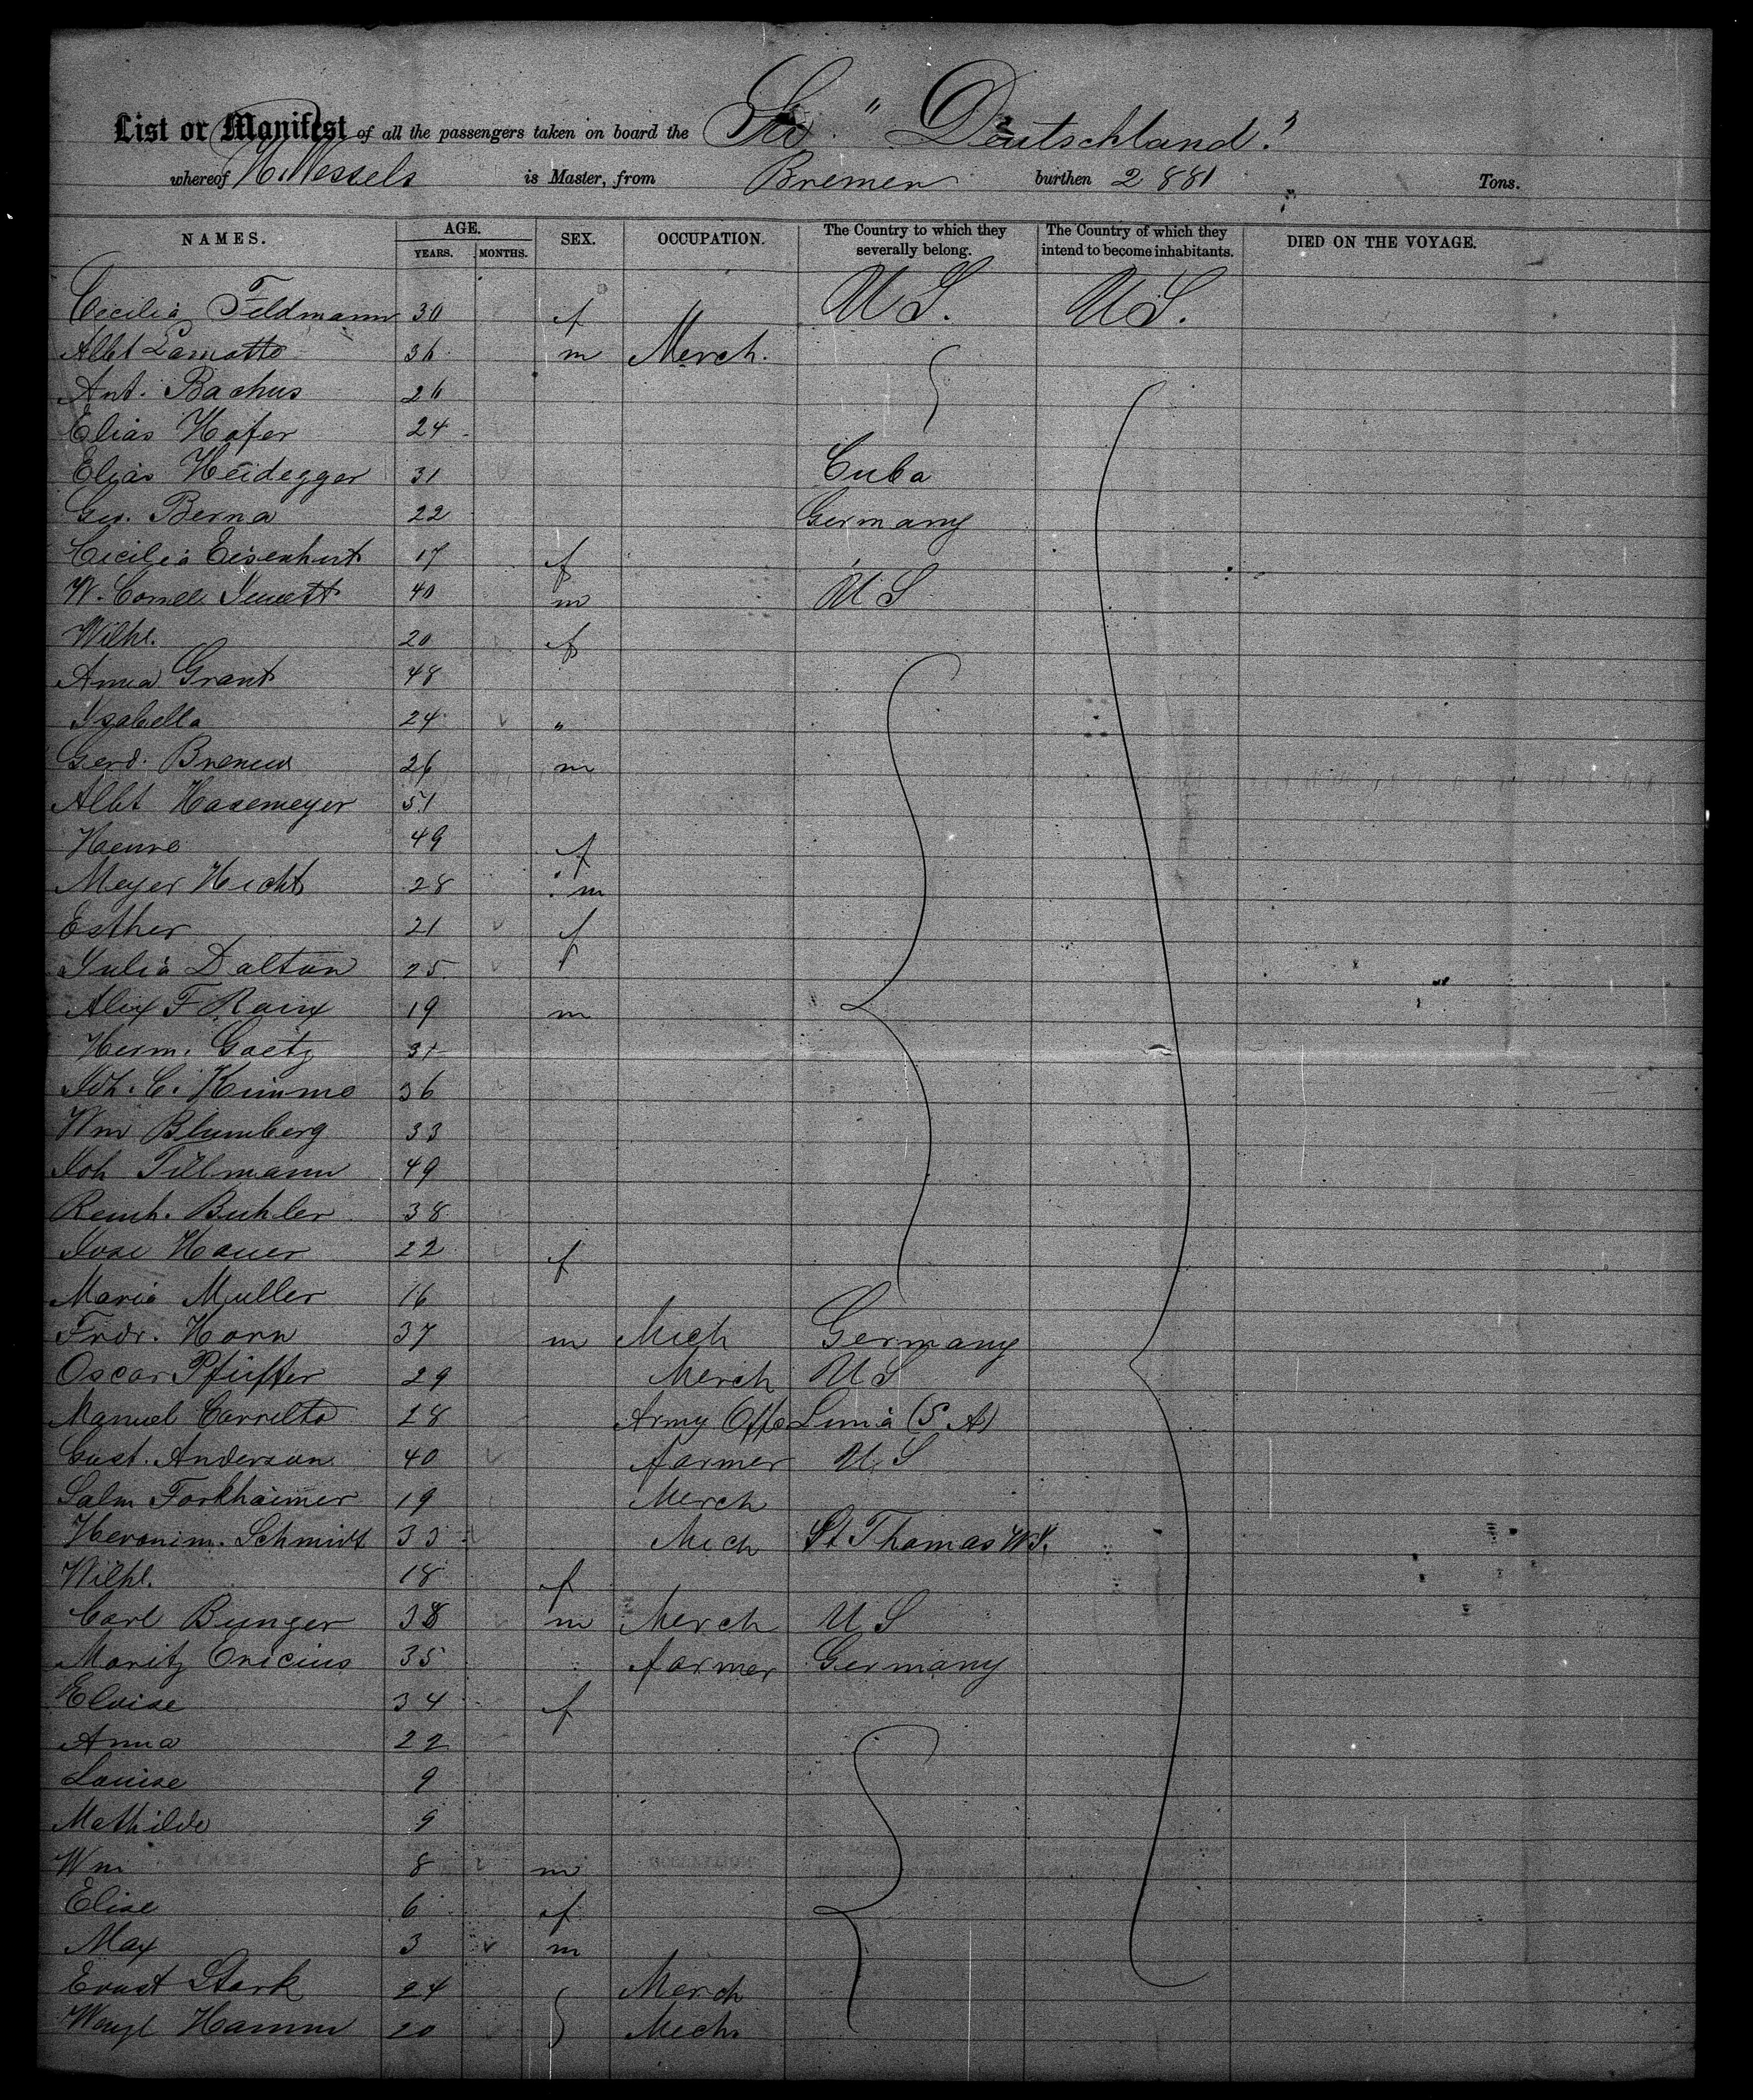 List or Manifest of all the passengers taken on board the Str. "Deutschland."
whereof H. Wessels is Master, from Bremen burthen 2881 Tons.
NAMES. AGE. YEARS. MONTHS. SEX. OCCUPATION. The Country to which they severally belong. The Country of which they intend to become inhabitants. DIED ON THE VOYAGE.
Cecilia Feldmann 30 f U S. U S.
Albt Lamotte 36 m Merch.
Ant. Bachus 26
Elias Hofer 24
Elias Heidegger 31 Cuba
Geo. Berna 22 Germany
Cecilia Eisenhut 17 f
W. Cornell Jewett 40 m U S
Wilhl. 20 f
Anna Grant 48
Isabella 24 "
Gerd. 26 m
Albt Hasemeyer 51
49 f
Meyer Hecht 28 m
Esther 21 f
Julia Dalton 25
Alex F 19 m
Herm. Goetz 31
Joh. C. Kimme 36
Wm Blumberg 33
Joh Tillmann 49
Reinh. Buhler 38
Hauer 22 f
Maria Muller 16
Fridr. Horn 37 m Mech Germany
Oscar Pfeiffer 29 Merch U S
Manuel 28 Army Offr Lima (S A)
Gust. Anderson 40 farmer U S
Salm Forkheimer 19 Merch
Heronim. Schmidt 33 Mech St Thomas W I.
Wilhl. 18 f
Carl Bunger 38 m Merch U S
Moritz Oricius 35 farmer Germany
Eloise 34 f
Anna 22
Louise 9
Mathilde 9
Wm 8 m
Elise 6 f
Max 3 m
Ernst Stark 24 Merch
Wenzl Hamm 20 Mech